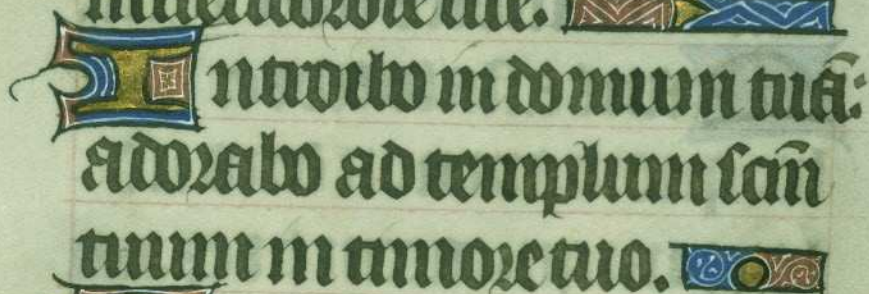 Introibo in domum tuā:
adorabo ad templum scm̄
tuum in timore tuo.